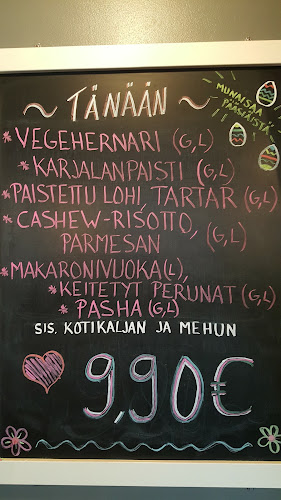 ~ TÄNÄÄN ~
MUNAISAA
PÄÄSIÄISTÄ
* VEGEHERNARI (G,L)
* KARJALANPAISTI (G,L)
* PAISTETTU LOHI, TARTAR (G,L)
* CASHEW-RISOTTO,
PARMESAN (G,L)
* MAKARONIVUOKA(L),
* KEITETYT PERUNAT (G,L)
* PASHA (G,L)
SIS. KOTIKALJAN JA MEHUN
9,90€